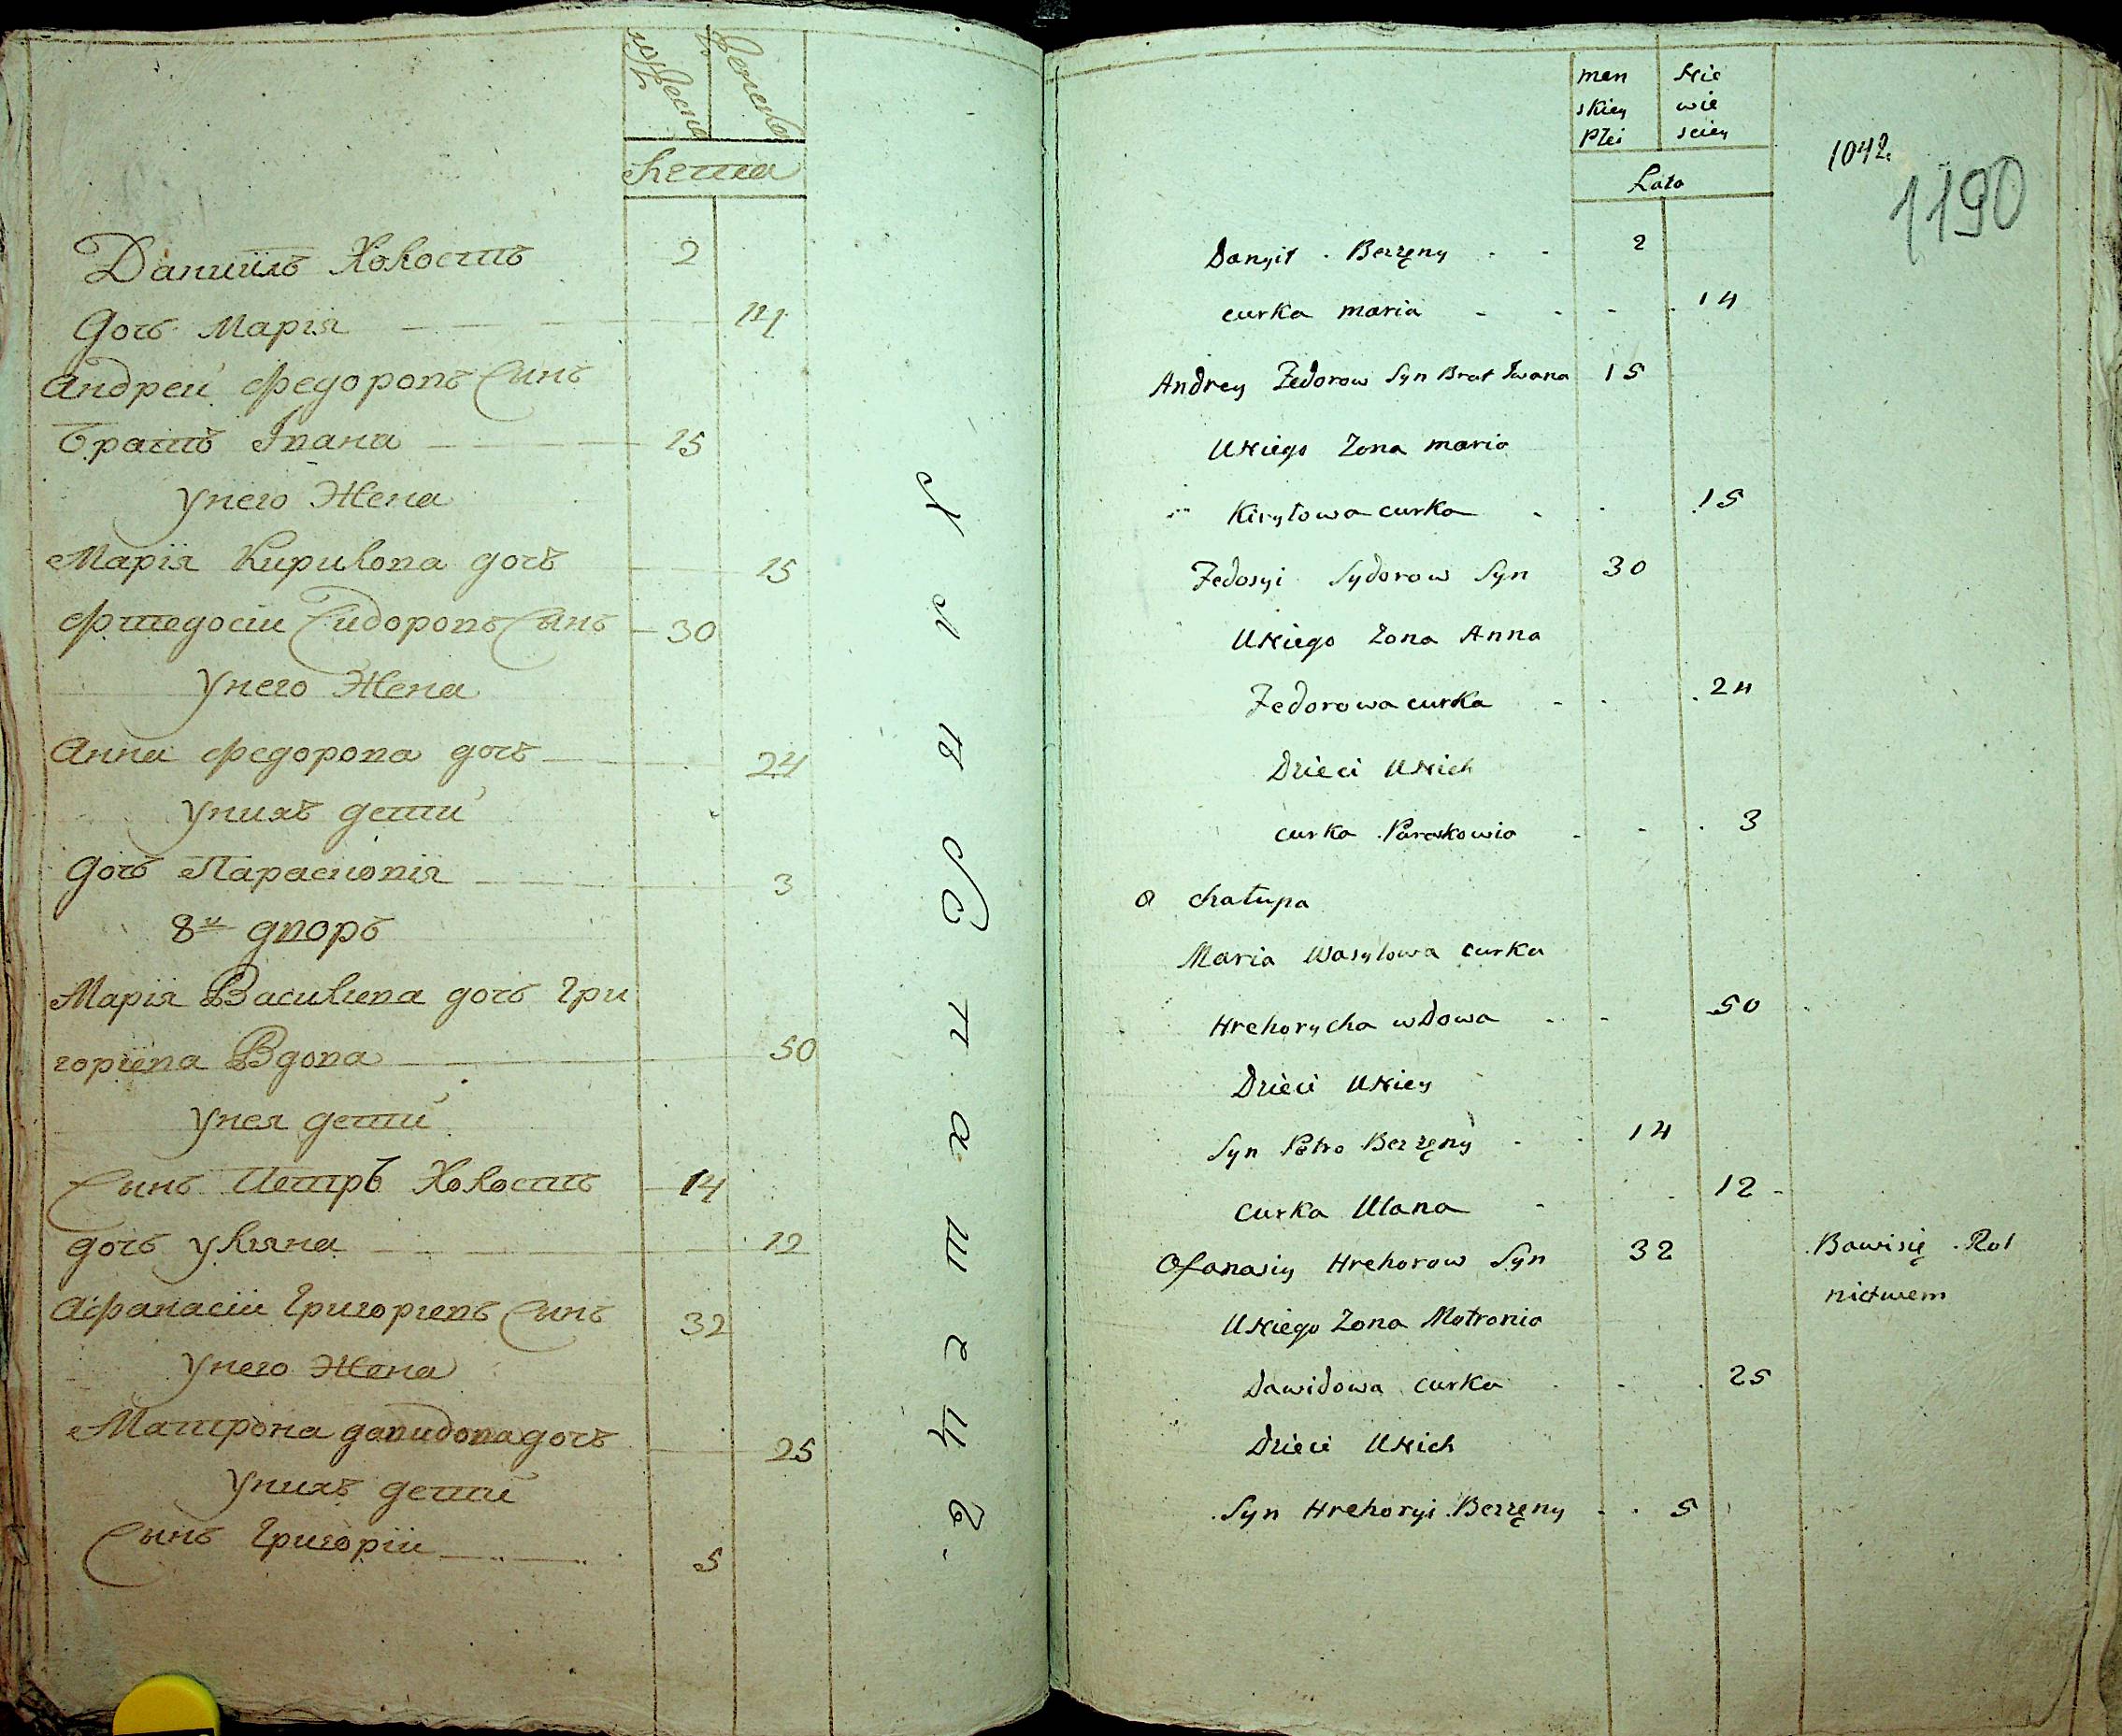 мужеска
женска
лета
Даниилъ Холостъ 2
дочь Марiя 14
Андрей Федоровъ Сынъ
братъ Iвана 15
у него Жена
Марiя Кирилова дочь 15
Фтедосiи Сидоровъ Сынъ 30
у него Жена
Анна Федорова дочь 24
у нихъ дети
дочь Парасковiя 3
8й дворъ
Марiя Василиева дочь Гри
горiева Вдова 50
у нея дети
Сынъ Петръ Холостъ 14
дочь уляна 12
Афанасiи Григорiевъ Сынъ 32
у него Жена
Матрона давидова дочь 25
у нихъ дети
Сынъ Григорiи 5
men Nie
skiey wie
Płci sciey
Lata
1042.
1190
Danyił Bezzęny 2
curka maria 14
Andrey Fedorow Syn Brat Iwana 15
U Niego Zona maria
Kiryłowa curka 15
Fedosyi Sydorow Syn 30
U Niego Zona Anna
Fedorowa curka 24
Dzieci U Nich
curka Paraskowia 3
8 chałupa
Maria Wasylowa curka
Hrehorycha wdowa 50
Dzieci U Niey
Syn Petro Bezzęny 14
curka Ulana 12
Ofanasiy Hrehorow Syn 32 Bawi się Rol
nictwem
U Niego Zona Motronia
Dawidowa curka 25
Dzieci U Nich
Syn Hrehoryi Bezzęny 5